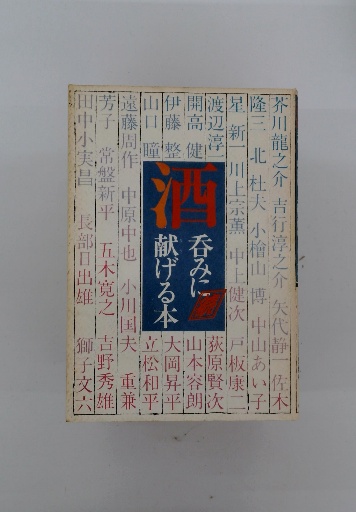 芥川龍之介 吉行淳之介 矢代静 佐木
隆三 北 杜夫 小檜山 博 中山あい子
星 新一 川上宗薫 中上健次 戸板康二
渡辺淳一 荻原賢次
開高 健 山本容朗
伊藤 整 大岡昇平
山口 瞳 立松和平
遠藤周作 中原中也 小川国夫 重兼
芳子 常盤新平 五木寛之 吉野秀雄
田中小実昌 長部日出雄 獅子文六
酒
呑みに
献げる本